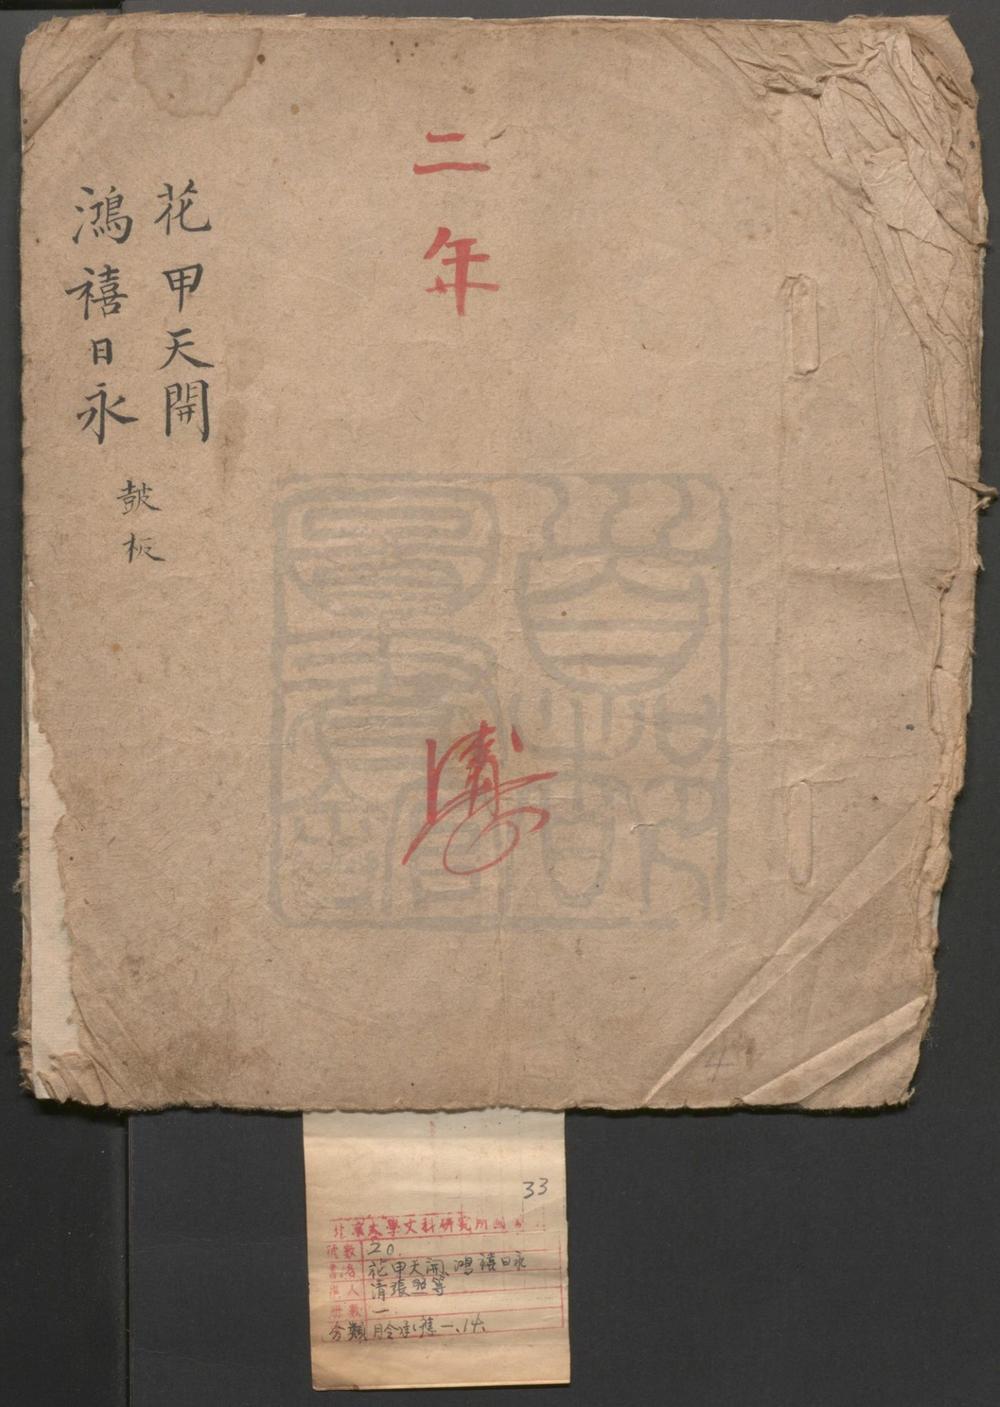 二年
花甲天開
鴻禧日永
鼓板
33
北京大學文科研究所
號數 20.
書名 花甲天開、鴻禧日永
撰人 清張照等
册數 一.
分類 月令承應一.14.